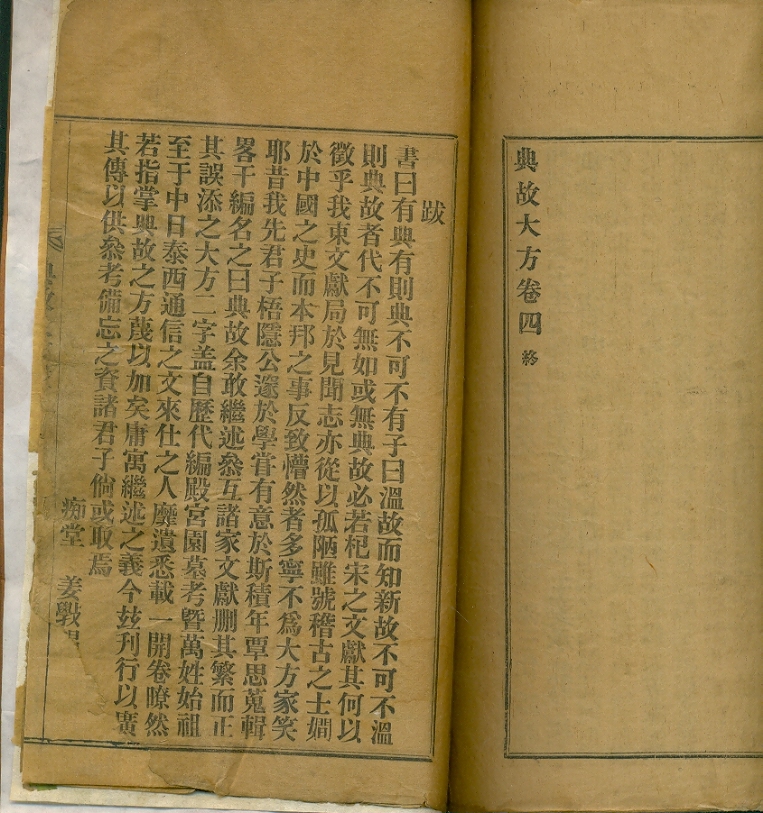 典故大方卷四 終
跋
書曰有典有則典不可不有子曰溫故而知新故不可不溫
則典故者代不可無如或無典故必若杞宋之文獻其何以
徵乎我東文獻局於見聞志亦從以孤陋雖號稽古之士嫺
於中國之史而本邦之事反致懵然者多寧不爲大方家笑
耶昔我先君子梧隱公邃於學甞有意於斯積年覃思蒐輯
畧干編名之曰典故余敢繼述叅互諸家文獻删其繁而正
其誤添之大方二字盖自歷代編殿宮園墓考曁萬姓始祖
至于中日泰西通信之文來仕之人靡遺悉載一開卷瞭然
若指掌典故之方蔑以加矣庸寓繼述之義今玆刊行以廣
其傳以供叅考備忘之資諸君子倘或取焉
痴堂 姜斅